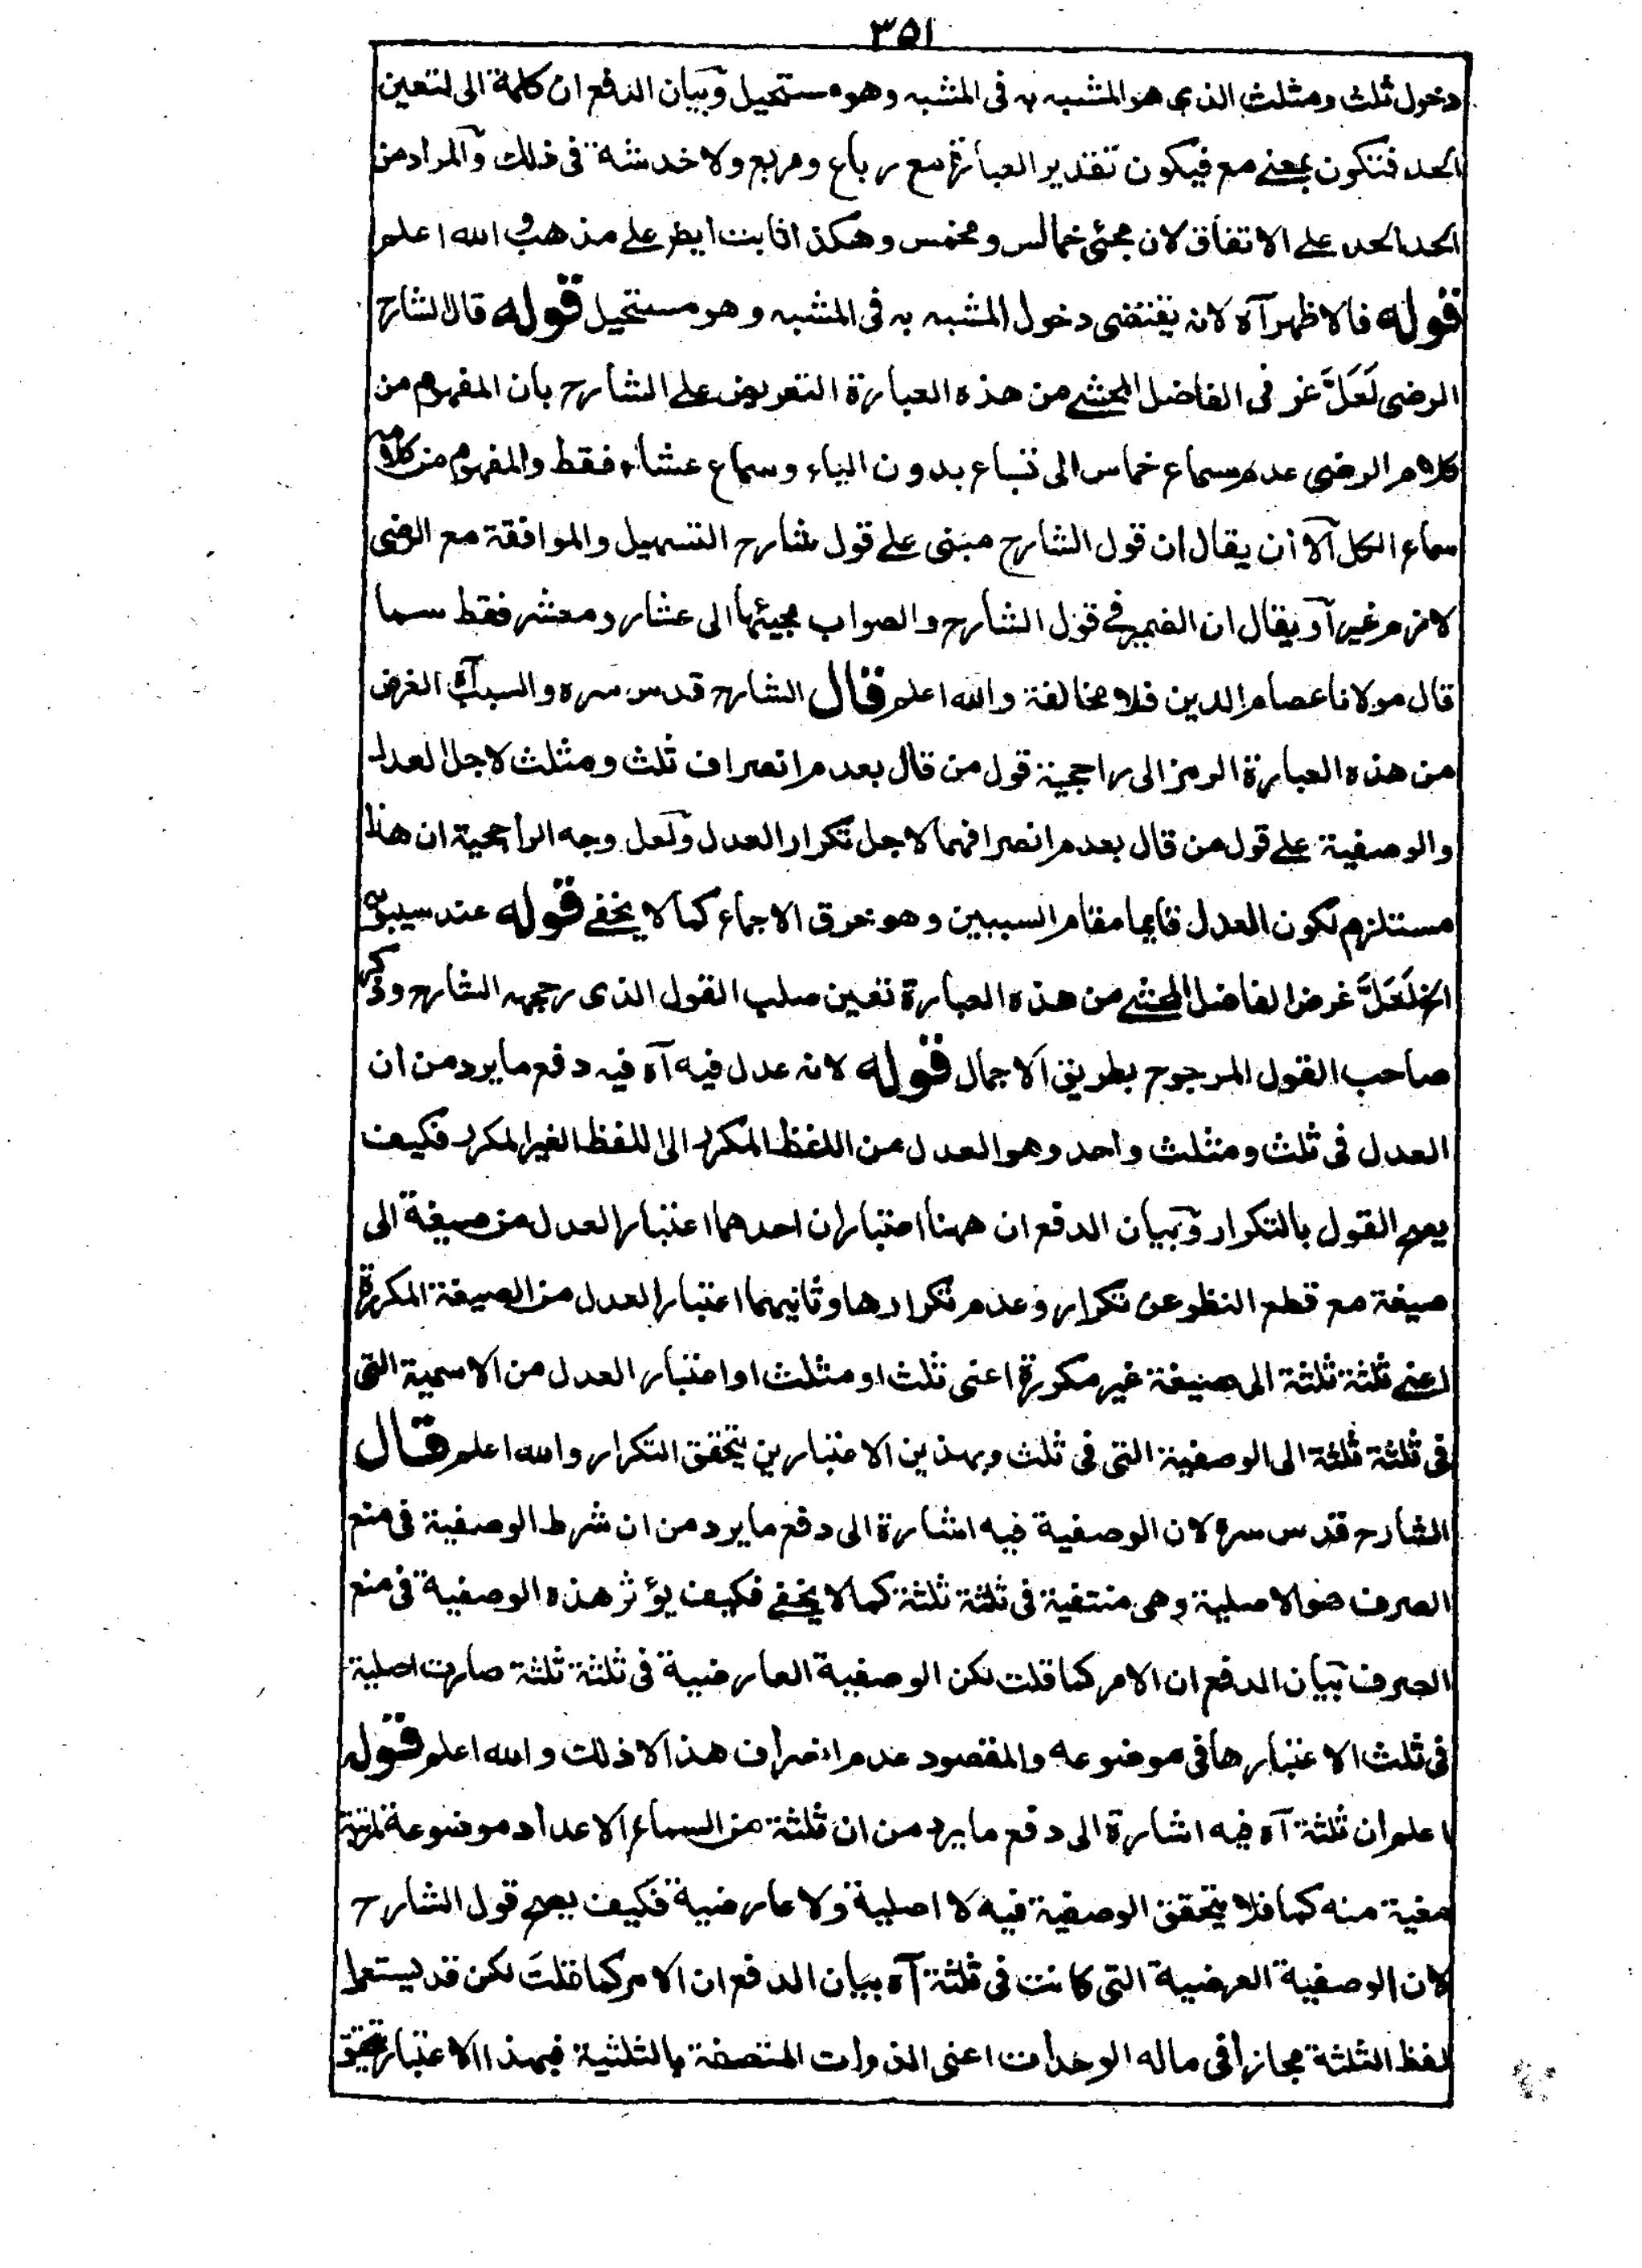 ٣٥١
دخول ثلث ومثلث الذي هو المشبه به في المشبه وهو مستحيل وبيان الدفع ان كلمة الى لتعين
الحد فتكون بمعنى مع فيكون تقدير العبارة مع رباع ومربع ولا خدشة في ذلك والمراد من
الحد الحد على الاتفاق لان مجئ خماس ومخمس وهكذا ثابت ايضا على مذهب والله اعلم
قوله فالاظهر آه لانه يقتضى دخول المشبه به في المشبه وهو مستحيل قوله قال الشارح
الرضى لَعَلَّ غرض الفاضل المحشى من هذه العبارة التعريض على الشارح بان المفهوم من
كلام الرضى عدم سماع خماس الى تساع بدون الياء وسماع عشار فقط والمفهوم من كلامه
سماع الكل الا أن يقال ان قول الشارح مبنى على قول شارح التسهيل والموافقة مع الرضى
لازم غير او يقال ان الضمير في قول الشارح والصواب مجيئها الى عشار ومعشر فقط سما
قال مولانا عصام الدين فلا مخالفة والله اعلم قال الشارح قدس سره والسبب آه الغرض
من هذه العبارة الرمز الى راجحية قول من قال بعدم انصراف ثلث ومثلث لاجل العدل
والوصفية على قول من قال بعدم انصرافهما لاجل تكرار العدل ولعل وجه الراجحية ان هذا
مستلزم لكون العدل قايما مقام السببين وهو خرق الاجماع كما لا يخفى قوله عند سيبويه
الخ لَعَلَّ غرض الفاضل المحشى من هذه العبارة تعين صلب القول الذى رجحه الشارح وذكر
صاحب القول المرجوح بطريق الاجمال قوله لانه عدل فيه آه فيه دفع ما يرد من ان
العدل في ثلث ومثلث واحد وهو العدل من اللفظ المكرر الى اللفظ الغير المكرر فكيف
يصح القول بالتكرار وبيان الدفع ان ههنا اعتباران احدهما اعتبار العدل من صيغة الى
صيغة مع قطع النظر عن تكرار وعدم تكرارها وثانيهما اعتبار العدل من الصيغة المكررة
اعنى ثلثة ثلثة الى صيغة غير مكررة اعنى ثلث او مثلث او اعتبار العدل من الاسمية التى
في ثلثة ثلثة الى الوصفية التى في ثلث وبهذين الاعتبارين يتحقق التكرار والله اعلم قال
الشارح قدس سره لان الوصفية فيه اشارة الى دفع ما يرد من ان شرط الوصفية في منع
الصرف هو الاصلية وهى منتفية في ثلثة ثلثة كما لا يخفى فكيف يؤثر هذه الوصفية في منع
الصرف بيان الدفع ان الامر كما قلت لكن الوصفية العارضية في ثلثة ثلثة صارت اصلية
في ثلث الاعتبارها في موضوعه والمقصود عدم انصراف هذا لا ذلك والله اعلم قوله
اعلم ان ثلثة آه فيه اشارة الى دفع ما يرد من ان ثلثة من السماء الاعداد موضوعة لمرتبة
معينة منه كما فلا يتحقق الوصفية فيه لا اصلية ولا عارضية فكيف يصح قول الشارح
لان الوصفية العرضية التى كانت في ثلثة آه بيان الدفع ان الامر كما قلتَ لكن قد يستعمل
لفظ الثلثة مجازا في ماله الوحدات اعنى الذوات المتصفة بالثلثية فبهذا الاعتبار تحقق